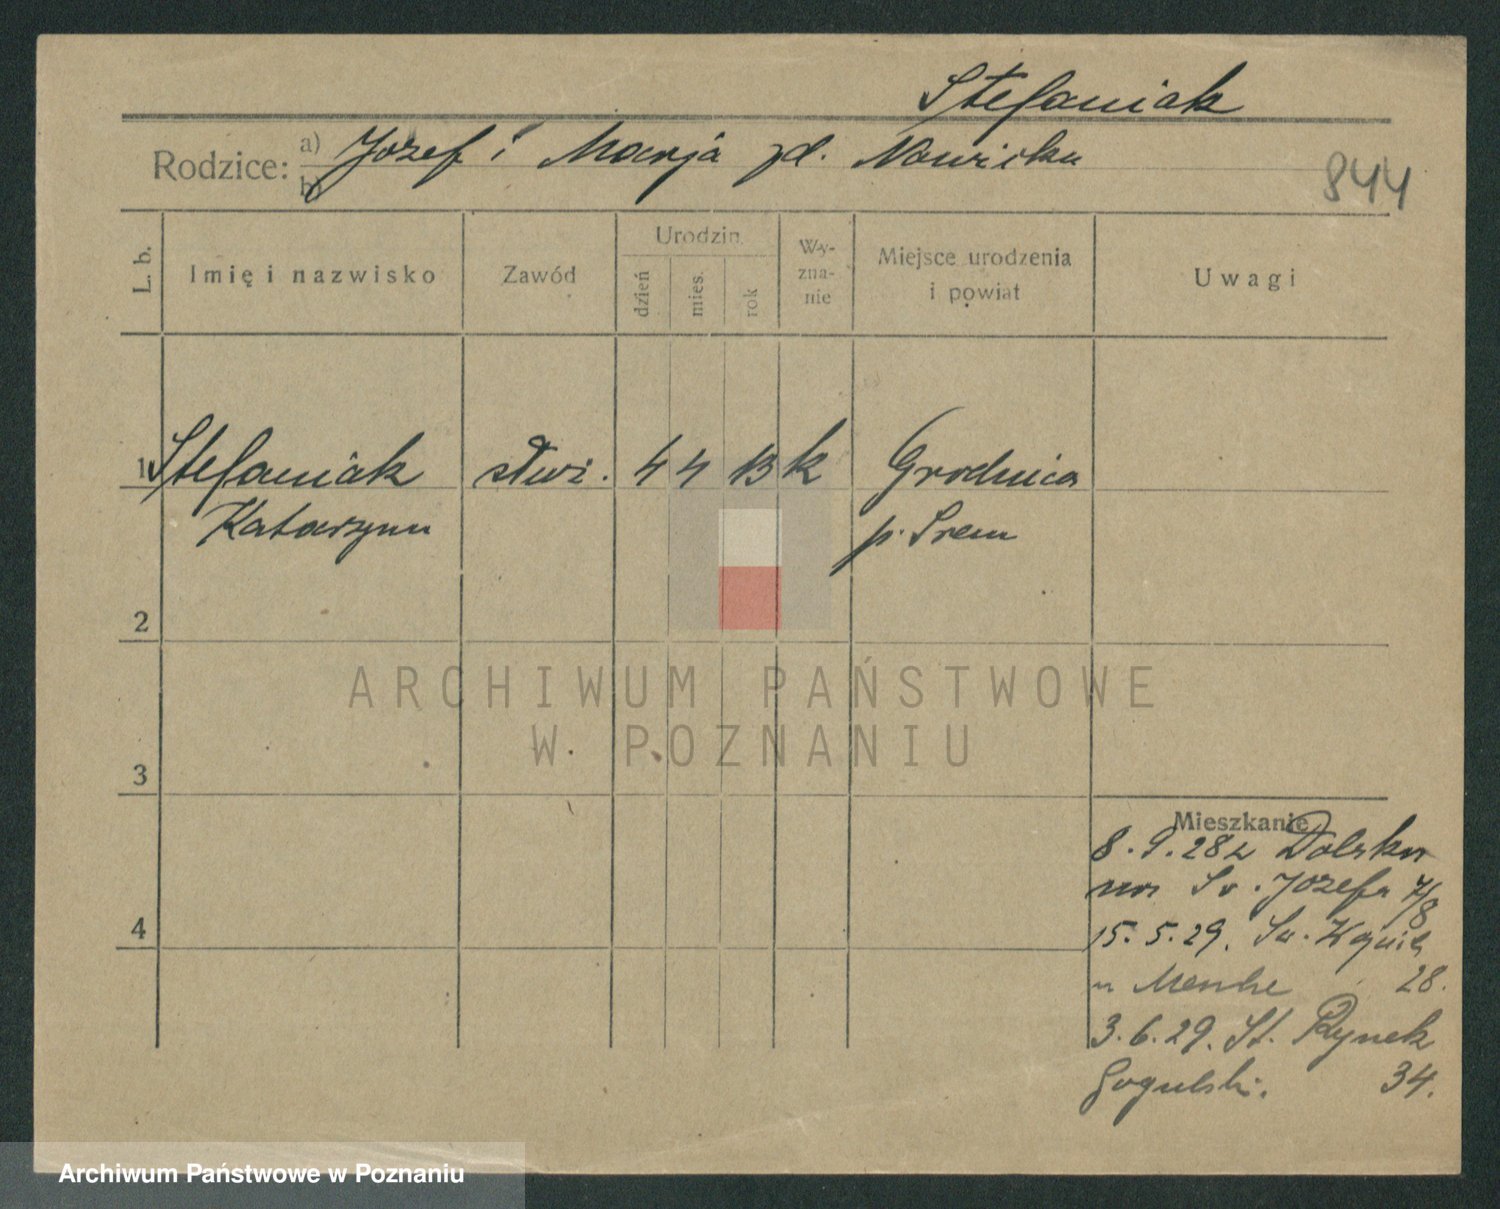 Stefaniak
Rodzice: a) Józef i Marja zd. Nawicka
b)
844
L. b.
Imię i nazwisko
Zawód
Urodzin
dzień
mies.
rok
Wy-
zna-
nie
Miejsce urodzenia
i powiat
Uwagi
1 Stefaniak służ. 4 4 13 k Grodnica
Katarzyna p. Śrem
2
3
4
Mieszkanie
8.9.28 z Dolska
na Św. Józefa 7/8
15.5.29. Św. Wojciech
28.
3.6.29. St. Rynek
Gogulski. 34.
ARCHIWUM PAŃSTWOWE
W POZNANIU
Archiwum Państwowe w Poznaniu